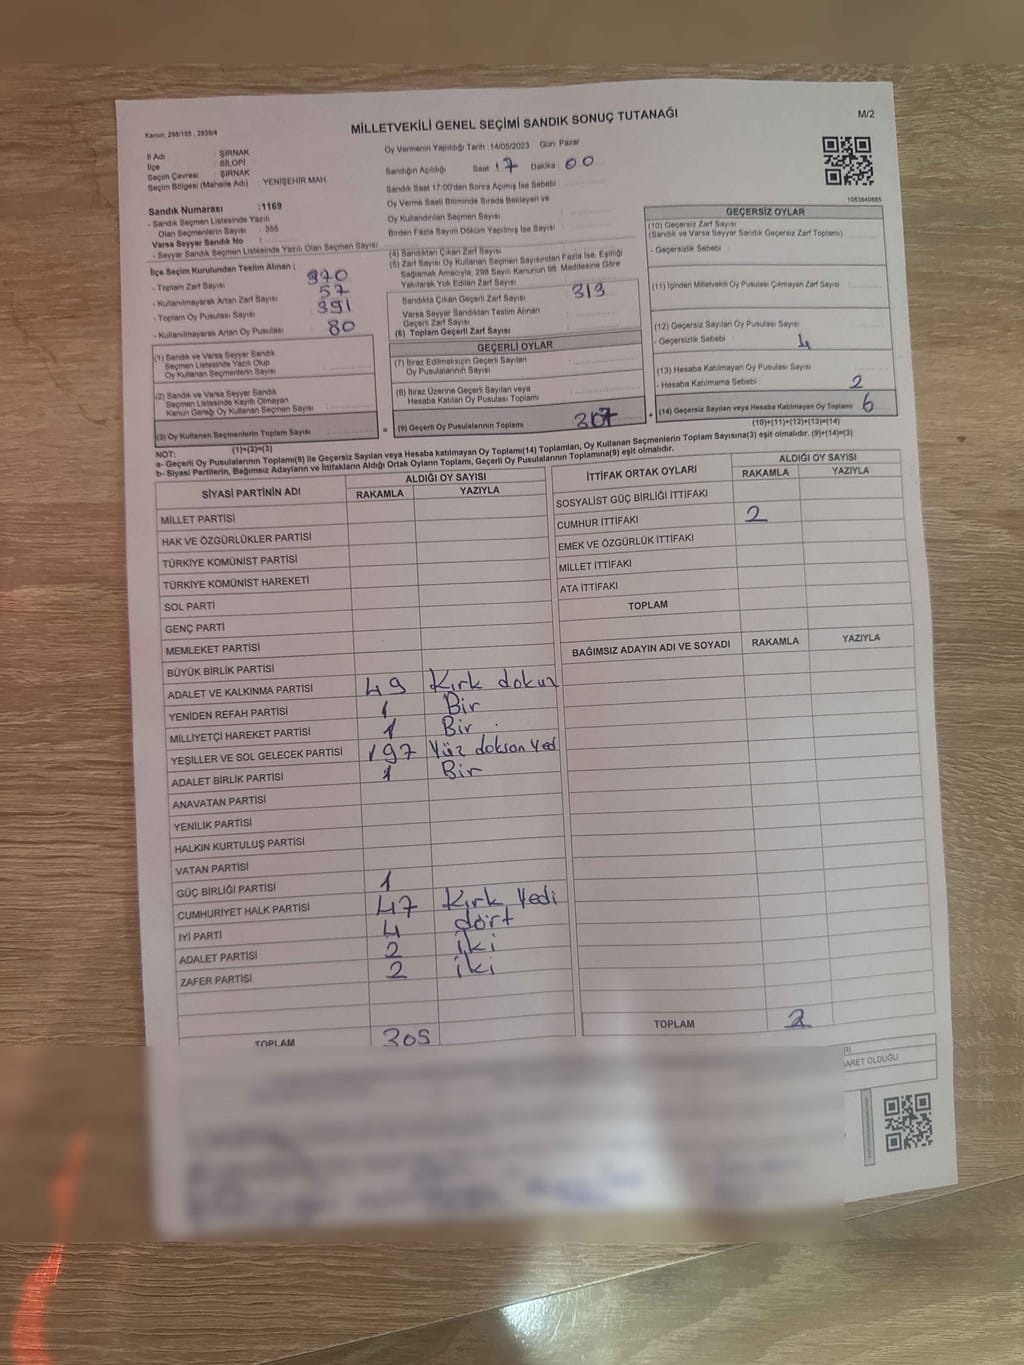 Kanun, 298/105 , 2839/4
MİLLETVEKİLİ GENEL SEÇİMİ SANDIK SONUÇ TUTANAĞI
M/2
İl Adı : ŞIRNAK
İlçe : SİLOPİ
Seçim Çevresi : ŞIRNAK
Seçim Bölgesi (Mahalle Adı) : YENİŞEHİR MAH.
Oy Vermenin Yapıldığı Tarih : 14/05/2023 Gün: Pazar
Sandığın Açıldığı Saat : 17 Dakika : 00
Sandık Saat 17:00'den Sonra Açımış İse Sebebi :
Oy Verme Saati Bitiminde Sırada Bekleyen ve
Oy Kullandırılan Seçmen Sayısı
Birden Fazla Sayım Döküm Yapılmış İse Sayısı
Sandık Numarası :1169
- Sandık Seçmen Listesinde Yazılı
Olan Seçmenlerin Sayısı : 355
Varsa Seyyar Sandık No :
- Seyyar Sandık Seçmen Listesinde Yazılı Olan Seçmen Sayısı
İlçe Seçim Kurulundan Teslim Alınan ;
- Toplam Zarf Sayısı : 370
- Kullanılmayarak Artan Zarf Sayısı : 57
- Toplam Oy Pusulası Sayısı : 391
- Kullanılmayarak Artan Oy Pusulası : 80
(1) Sandık ve Varsa Seyyar Sandık
Seçmen Listesinde Yazılı Olup
Oy Kullanan Seçmenlerin Sayısı
(2) Sandık ve Varsa Seyyar Sandık
Seçmen Listesinde Kayıtlı Olmayan
Kanun Gereği Oy Kullanan Seçmen Sayısı
(3) Oy Kullanan Seçmenlerin Toplam Sayısı
(1)+(2)=(3)
(4) Sandıktan Çıkan Zarf Sayısı
(5) Zarf Sayısı Oy Kullanan Seçmen Sayısından Fazla İse, Eşitliği
Sağlamak Amacıyla, 298 Sayılı Kanunun 98. Maddesine Göre
Yakılarak Yok Edilen Zarf Sayısı
Sandıkta Çıkan Geçerli Zarf Sayısı 313
Varsa Seyyar Sandıktan Teslim Alınan
Geçerli Zarf Sayısı
(6) Toplam Geçerli Zarf Sayısı
GEÇERLİ OYLAR
(7) İtiraz Edilmeksizin Geçerli Sayılan
Oy Pusulalarının Sayısı
(8) İtiraz Üzerine Geçerli Sayılan veya
Hesaba Katılan Oy Pusulası Toplamı
= (9) Geçerli Oy Pusulalarının Toplamı 307 +
1063640885
GEÇERSİZ OYLAR
(10) Geçersiz Zarf Sayısı
(Sandık ve Varsa Seyyar Sandık Geçersiz Zarf Toplamı)
- Geçersizlik Sebebi :
(11) İçinden Milletvekili Oy Pusulası Çıkmayan Zarf Sayısı
(12) Geçersiz Sayılan Oy Pusulası Sayısı
- Geçersizlik Sebebi : 4
(13) Hesaba Katılmayan Oy Pusulası Sayısı
- Hesaba Katılmama Sebebi : 2
(14) Geçersiz Sayılan veya Hesaba Katılmayan Oy Toplamı 6
(10)+(11)+(12)+(13)=(14)
NOT:
a- Geçerli Oy Pusulalarının Toplamı(9) ile Geçersiz Sayılan veya Hesaba katılmayan Oy Toplamı(14) Toplamları, Oy Kullanan Seçmenlerin Toplam Sayısına(3) eşit olmalıdır. (9)+(14)=(3)
b- Siyasi Partilerin, Bağımsız Adayların ve İttifakların Aldığı Ortak Oyların Toplamı, Geçerli Oy Pusulalarının Toplamına(9) eşit olmalıdır.
SİYASİ PARTİNİN ADI
ALDIĞI OY SAYISI
RAKAMLA YAZIYLA
MİLLET PARTİSİ
HAK VE ÖZGÜRLÜKLER PARTİSİ
TÜRKİYE KOMÜNİST PARTİSİ
TÜRKİYE KOMÜNİST HAREKETİ
SOL PARTİ
GENÇ PARTİ
MEMLEKET PARTİSİ
BÜYÜK BİRLİK PARTİSİ
ADALET VE KALKINMA PARTİSİ 49 Kırk dokuz
YENİDEN REFAH PARTİSİ 1 Bir
MİLLİYETÇİ HAREKET PARTİSİ 1 Bir
YEŞİLLER VE SOL GELECEK PARTİSİ 197 Yüz doksan Yedi
ADALET BİRLİK PARTİSİ 1 Bir
ANAVATAN PARTİSİ
YENİLİK PARTİSİ
HALKIN KURTULUŞ PARTİSİ
VATAN PARTİSİ
GÜÇ BİRLİĞİ PARTİSİ 1
CUMHURİYET HALK PARTİSİ 47 Kırk Yedi
İYİ PARTİ 4 dört
ADALET PARTİSİ 2 iki
ZAFER PARTİSİ 2 iki
TOPLAM 305
İTTİFAK ORTAK OYLARI
ALDIĞI OY SAYISI
RAKAMLA YAZIYLA
SOSYALİST GÜÇ BİRLİĞİ İTTİFAKI
CUMHUR İTTİFAKI 2
EMEK VE ÖZGÜRLÜK İTTİFAKI
MİLLET İTTİFAKI
ATA İTTİFAKI
TOPLAM
BAĞIMSIZ ADAYIN ADI VE SOYADI RAKAMLA YAZIYLA
TOPLAM 2
RI
ARET OLDUĞU